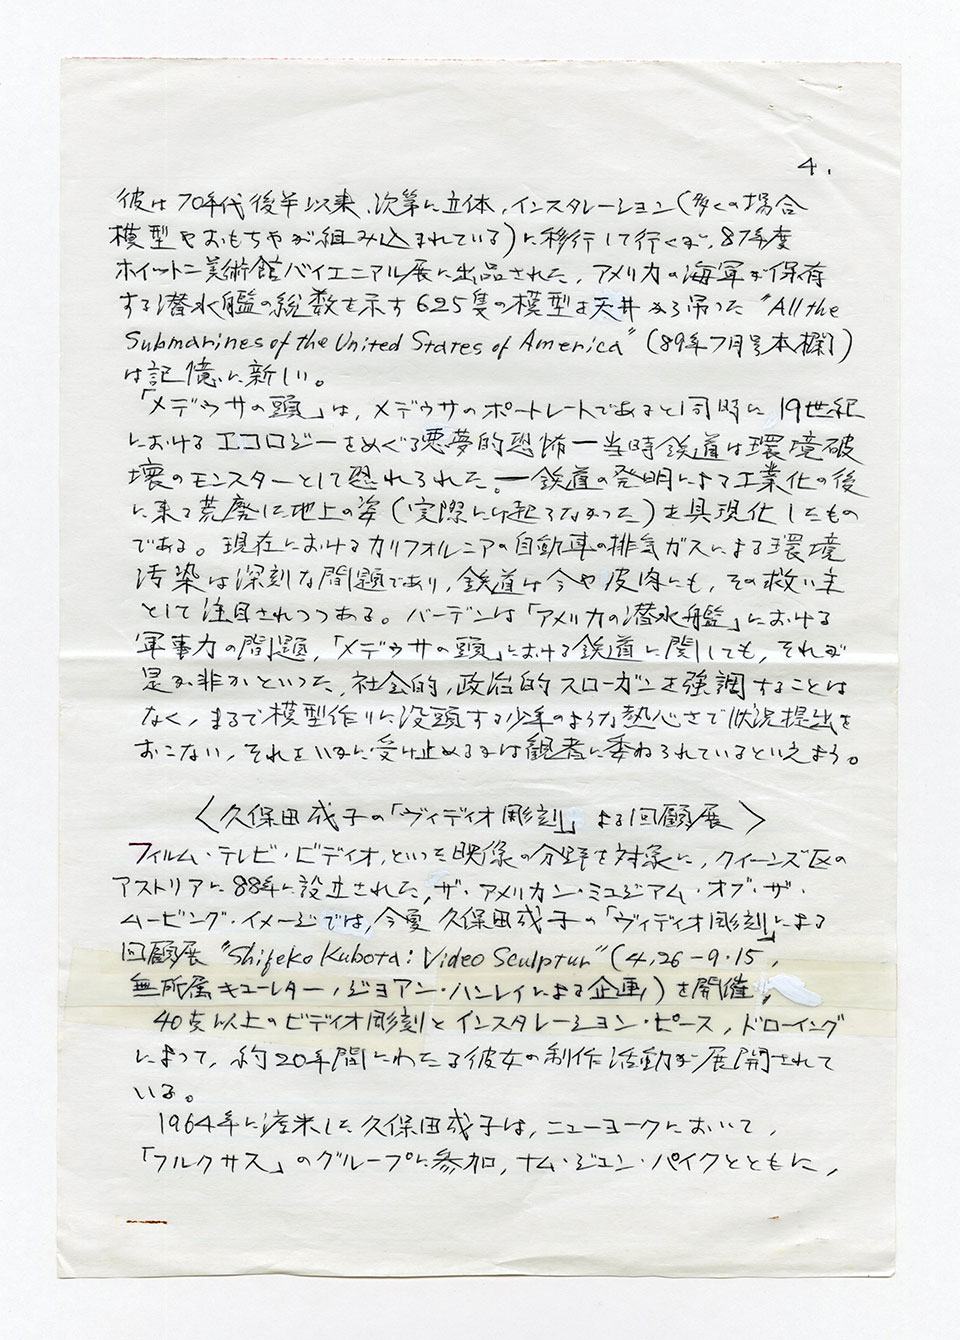 4.
彼は70年代後半以来、次第に立体、インスタレーション(多くの場合
模型やおもちゃが組み込まれている)に移行して行くが、87年度
ホイットニ美術館バイエニアル展に出品された、アメリカの海軍が保有
する潜水艦の総数を示す625隻の模型を天井から吊った "All the
Submarines of the United States of America" (89年7月号本欄)
は記憶に新しい。
「メデゥサの頭」は、メデゥサのポートレートであると同時に19世紀
におけるエコロジーをめぐる悪夢的恐怖ー当時鉄道は環境破
壊のモンスターとして恐れられた。ー鉄道の発明による工業化の後
に来る荒廃した地上の姿(実際には起らなかった)を具現化したもの
である。現在におけるカリフォルニアの自動車の排気ガスによる環境
汚染は深刻な問題であり、鉄道は今や皮肉にも、その救い主
として注目されつつある。バーデンは「アメリカの潜水艦」における
軍事力の問題、「メデゥサの頭」における鉄道に関しても、それが
是か非かといった、社会的、政治的スローガンを強調することは
なく、まるで模型作りに没頭する少年のような熱心さで状況提出を
おこない、それをいかに受け止めるかは観者に委ねられているといえよう。
〈久保田成子の「ヴィディオ彫刻」よる回顧展〉
フィルム・テレビ・ビディオ、といった映像の分野を対象に、クイーンズ区の
アストリアに88年に設立された、ザ・アメリカン・ミュジアム・オブ・ザ・
ムービング・イメージでは、今夏 久保田成子の「ヴィディオ彫刻」による
回顧展 "Shigeko Kubota: Video Sculptur" (4,26-9・15,
無所属キューレター、ジョアン・ハンレイによる企画)を開催、
40点以上のビディオ彫刻とインスタレーション・ピース、ドローイング
によって、約20年間にわたる彼女の制作活動が展開されて
いる。
1964年に渡米した久保田成子は、ニューヨークにおいて、
「フルクサス」のグループに参加、ナム・ジュン・パイクとともに、